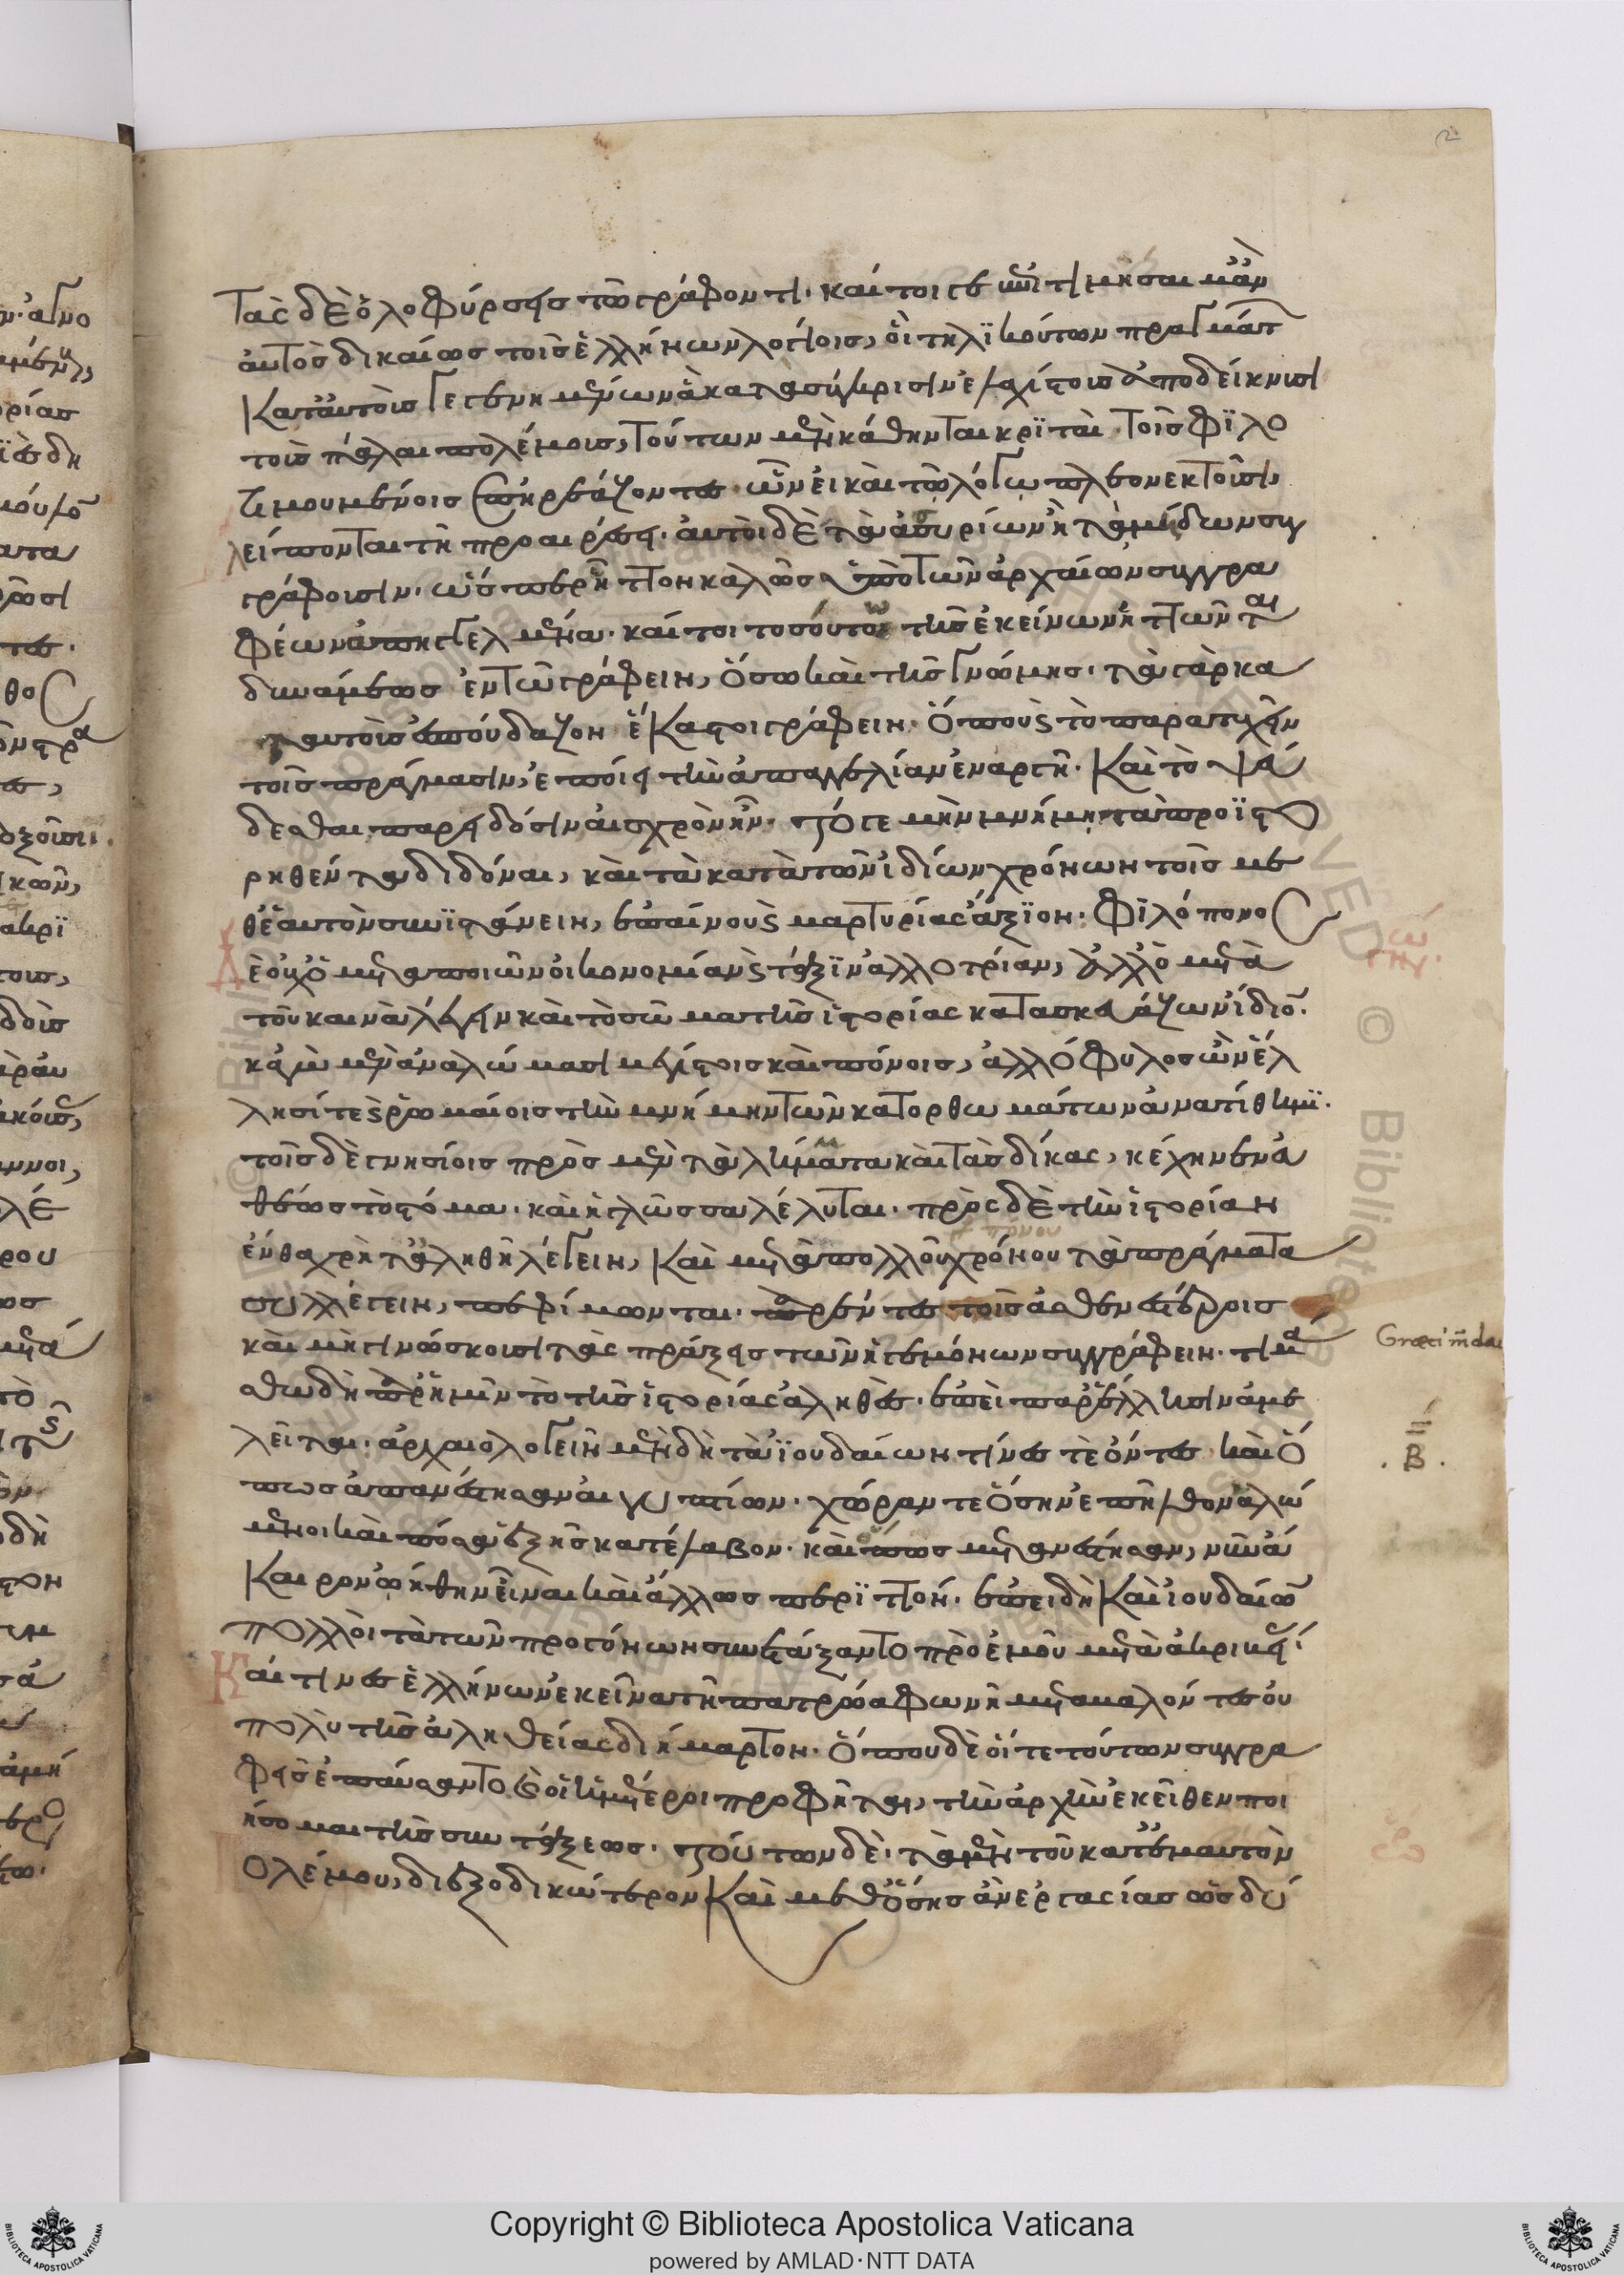 τὰς δὲ ὀλοφύρσεις τῶ γράφοντι. καίτοι γε ἐπιτιμήσαιμ' ἂν
αὐτὸς δικαίως τοῖς ἑλλήνων λογίοις, οἳ τηλικούτων πραγμάτ
κατ' αὐτοὺς γεγενημένων ἃ κατὰ σύγκρισιν ἐλαχίστους ἀποδείκνυσι
τοὺς πάλαι πολέμους, τούτων μὲν κάθηνται κριταὶ τοῖς φιλο
τιμουμένοις ἐπηρεάζοντες. ὧν εἰ καὶ τῶ λόγω πλεονεκτοῦσι,
λείπονται τῆ προαιρέσει. αὐτοὶ δὲ τὰ ἀσυρίων καὶ τὰ μήδων συγ
γράφουσιν. ὥσπερ ἧττον καλῶς ὑπὸ τῶν ἀρχαίων συγγρα
φέων ἀπηγγελμένα. καίτοι τοσούτω τῆς ἐκείνων ἡττῶνται
δυνάμεως ἐν τῶ γράφειν, ὅσω καὶ τῆς γνώμης. τὰ γὰρ κα
τ' αὐτοὺς ἐσπούδαζον ἕκαστοι γράφειν. ὅπου καὶ τὸ παρατυχεῖν
τοῖς πράγμασιν, ἐποίει τὴν ἀπαγγελίαν ἐναργῆ. καὶ τὸ ψεύ
δεσθαι παρ' εἰδόσιν αἰσχρὸν ἦν. τό γε μὴν μνήμη τὰ προϊστο
ρηθέντα διδόναι, καὶ τὰ κατὰ τῶν ἰδίων χρόνων τοῖς με
θ' ἑαυτὸν συνιστάνειν, ἐπαίνου καὶ μαρτυρίας ἄξιον. φιλόπονος
δὲ οὐχ ὁ μεταποιῶν οἰκονομίαν καὶ τάξιν ἀλλοτρίαν, ἀλλ' ὁ μετὰ
τοῦ καινὰ λέγειν καὶ τὸ σῶμα τῆς ἱστορίας κατασκευάζων ἴδιον.
κἀγὼ μὲν ἀναλώμασι μεγίστοις καὶ πόνοις, ἀλλόφυλος ὢν ἕλ
λησί τε καὶ ῥωμαίοις τὴν μνήμην τῶν κατορθωμάτων ἀνατίθημι.
τοῖς δὲ γνησίοις πρὸς μὲν τὰ λήμματα καὶ τὰς δίκας, κέχηνεν εὐ
θέως τὸ στόμα. καὶ ἡ γλῶσσα λέλυται. πρὸς δὲ τὴν ἱστορίαν
ἔνθα χρὴ τἀληθῆ λέγειν, καὶ μετὰ πολλοῦ χρόνου τὰ πράγματα
πόνου
συλλέγειν, πεφίμωνται. παρέντες τοῖς ἀσθενεστέροις
καὶ μὴ γινώσκουσι τὰς πράξεις τῶν ἡγεμόνων συγγράφειν. τιμά
Graeci
σθω δὴ παρ' ἡμῖν τὸ τῆς ἱστορίας ἀληθές. ἐπεὶ παρ' ἕλλησιν ἀμε
λεῖται. ἀρχαιολογεῖν μὲν δὴ τὰ ἰουδαίων τίνες τε ὄντες καὶ ὅ
.Β.
πως ἀπανέστησαν αἰγυπτίων. χώραν τε ὅσην ἐπῆλθον ἀλώ
μενοι καὶ πόσα ἑξῆς κατέλαβον. καὶ ὅπως μετανέστησαν, νῦν ἄ
καιρον ὠήθην εἶναι καὶ ἄλλως περιττόν. ἐπειδὴ καὶ ἰουδαίων
πολλοὶ τὰ τῶν προγόνων συνετάξαντο πρὸ ἐμοῦ μετὰ ἀκριβεί
καί τινες ἑλλήνων ἐκεῖνα τῆ πατρώα φωνῆ μεταβαλόντες οὐ
πολὺ τῆς ἀληθείας διήμαρτον. ὅπου δὲ οἵ τε τούτων συγγρα
φεῖς ἐπαύσαντο καὶ οἱ ἡμέτεροι προφῆται, τὴν ἀρχὴν ἐκεῖθεν ποι
ήσομαι τῆς συντάξεως. τούτων δὲ. τὰ μὲν τοῦ κατ' ἐμαυτὸν
πολέμου, διεξοδικώτερον καὶ μεθ' ὅσης ἂν ἐργασίας ὡς δύ